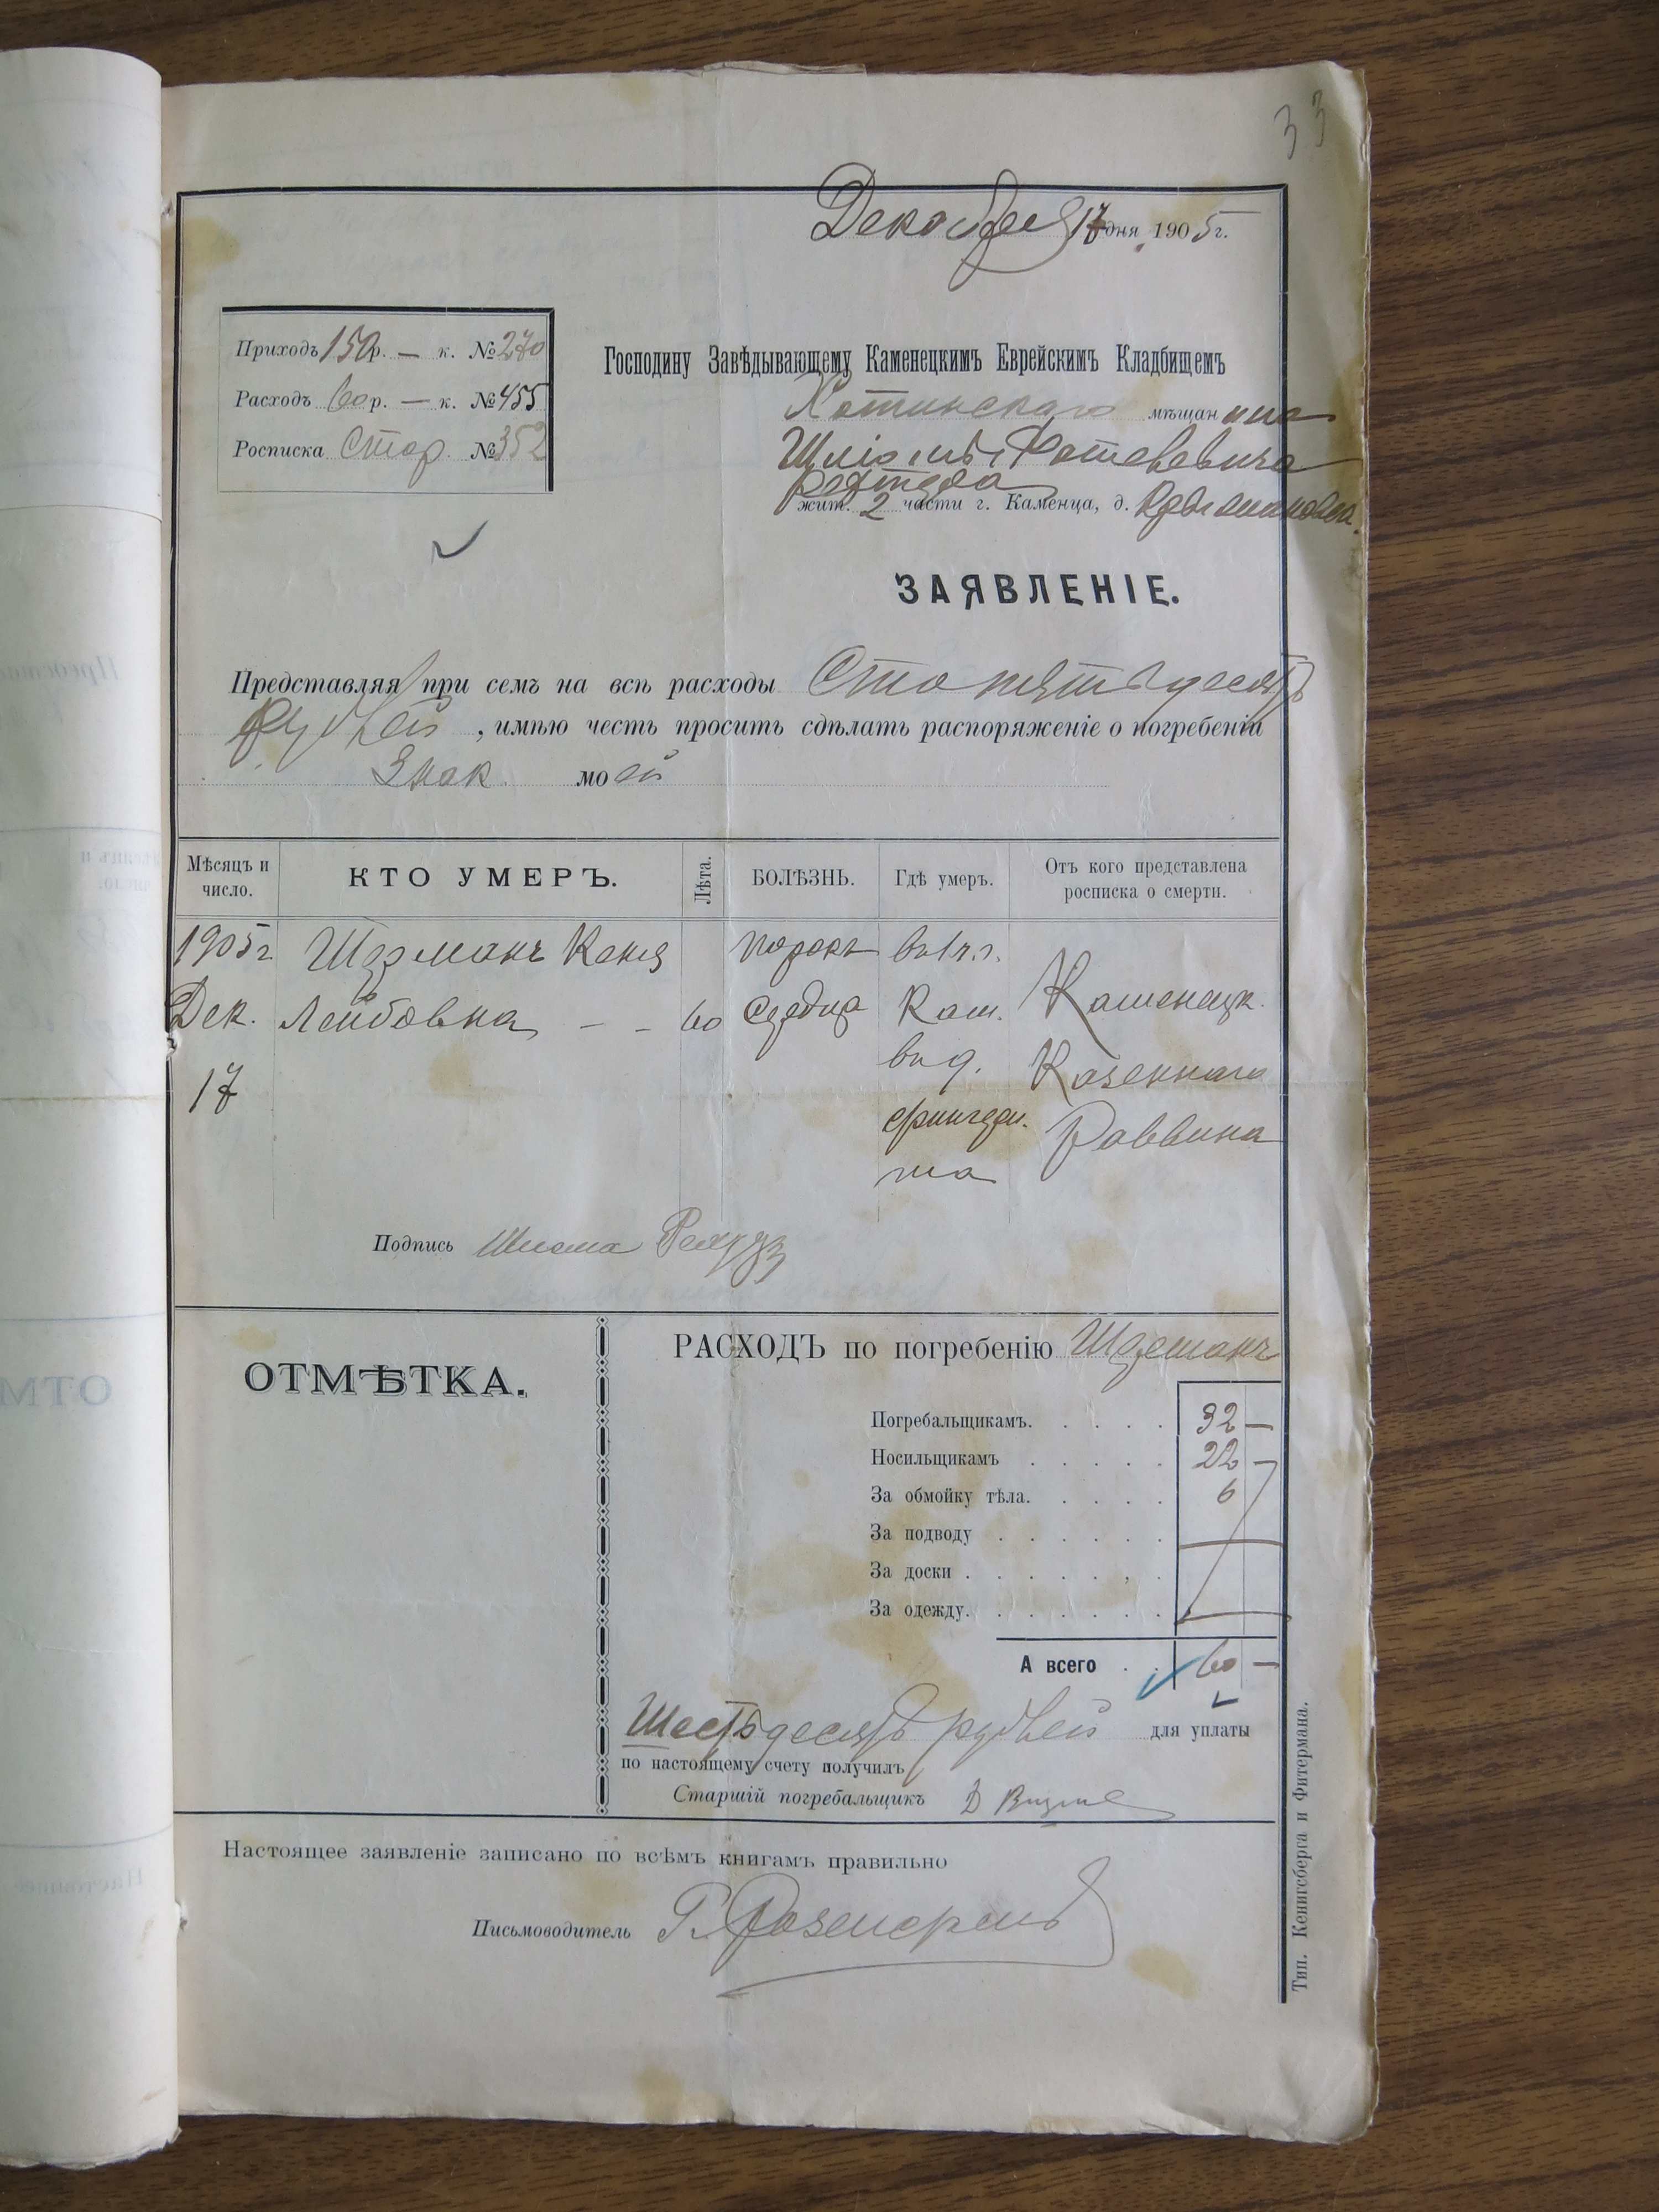 33
Декабря 17 дня 1905 г.
Приходъ 150 р. — к. № 270
Расходъ 60 р. — к. № 455
Росписка Стор. № 352
Господину Завѣдывающему Каменецкимъ Еврейскимъ Кладбищемъ
Хотинскаго мѣщанина
жит. 2 части г. Каменца, д.
ЗАЯВЛЕНІЕ.
Представляя при семъ на всѣ расходы Сто пятьдесятъ
рублей, имѣю честь просить сдѣлать распоряженіе о погребеніи
Знак. моей
Мѣсяцъ и число. КТО УМЕРЪ. Лѣта. БОЛѢЗНЬ. Гдѣ умеръ. Отъ кого представлена росписка о смерти.
1905 г. Шерманъ Кеня порокъ
Дек. Лейбовна — — 60 сердца Кам. Каменецк.
17 Казеннаго
Раввина
Подпись
ОТМѢТКА.
РАСХОДЪ по погребенію Шерманъ
Погребальщикамъ. 32 —
Носильщикамъ 22 —
За обмойку тѣла. 6
За подводу
За доски
За одежду.
А всего 60 —
Шестьдесятъ рублей для уплаты
по настоящему счету получилъ
Старшій погребальщикъ
Настоящее заявленіе записано по всѣмъ книгамъ правильно
Письмоводитель
Тип. Кенигсберга и Фитермана.